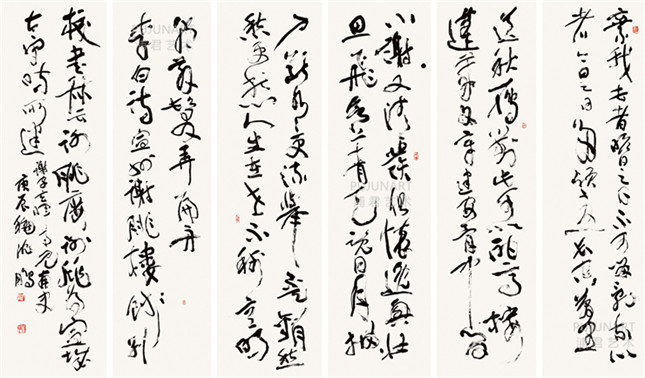 棄我去者昨日之日不可留亂我心
者今日之日多煩憂長風萬里
送秋雁對此可以酣高樓
蓬萊文章建安骨中間
小謝又清發俱懷逸興壯
思飛欲上青天覽日月抽
刀斷水水更流舉杯銷愁
愁更愁人生在世不稱意明
朝散髮弄扁舟
李白詩宣州謝朓樓餞別
校書叔雲謝朓樓謝朓為宣城
太守時所建